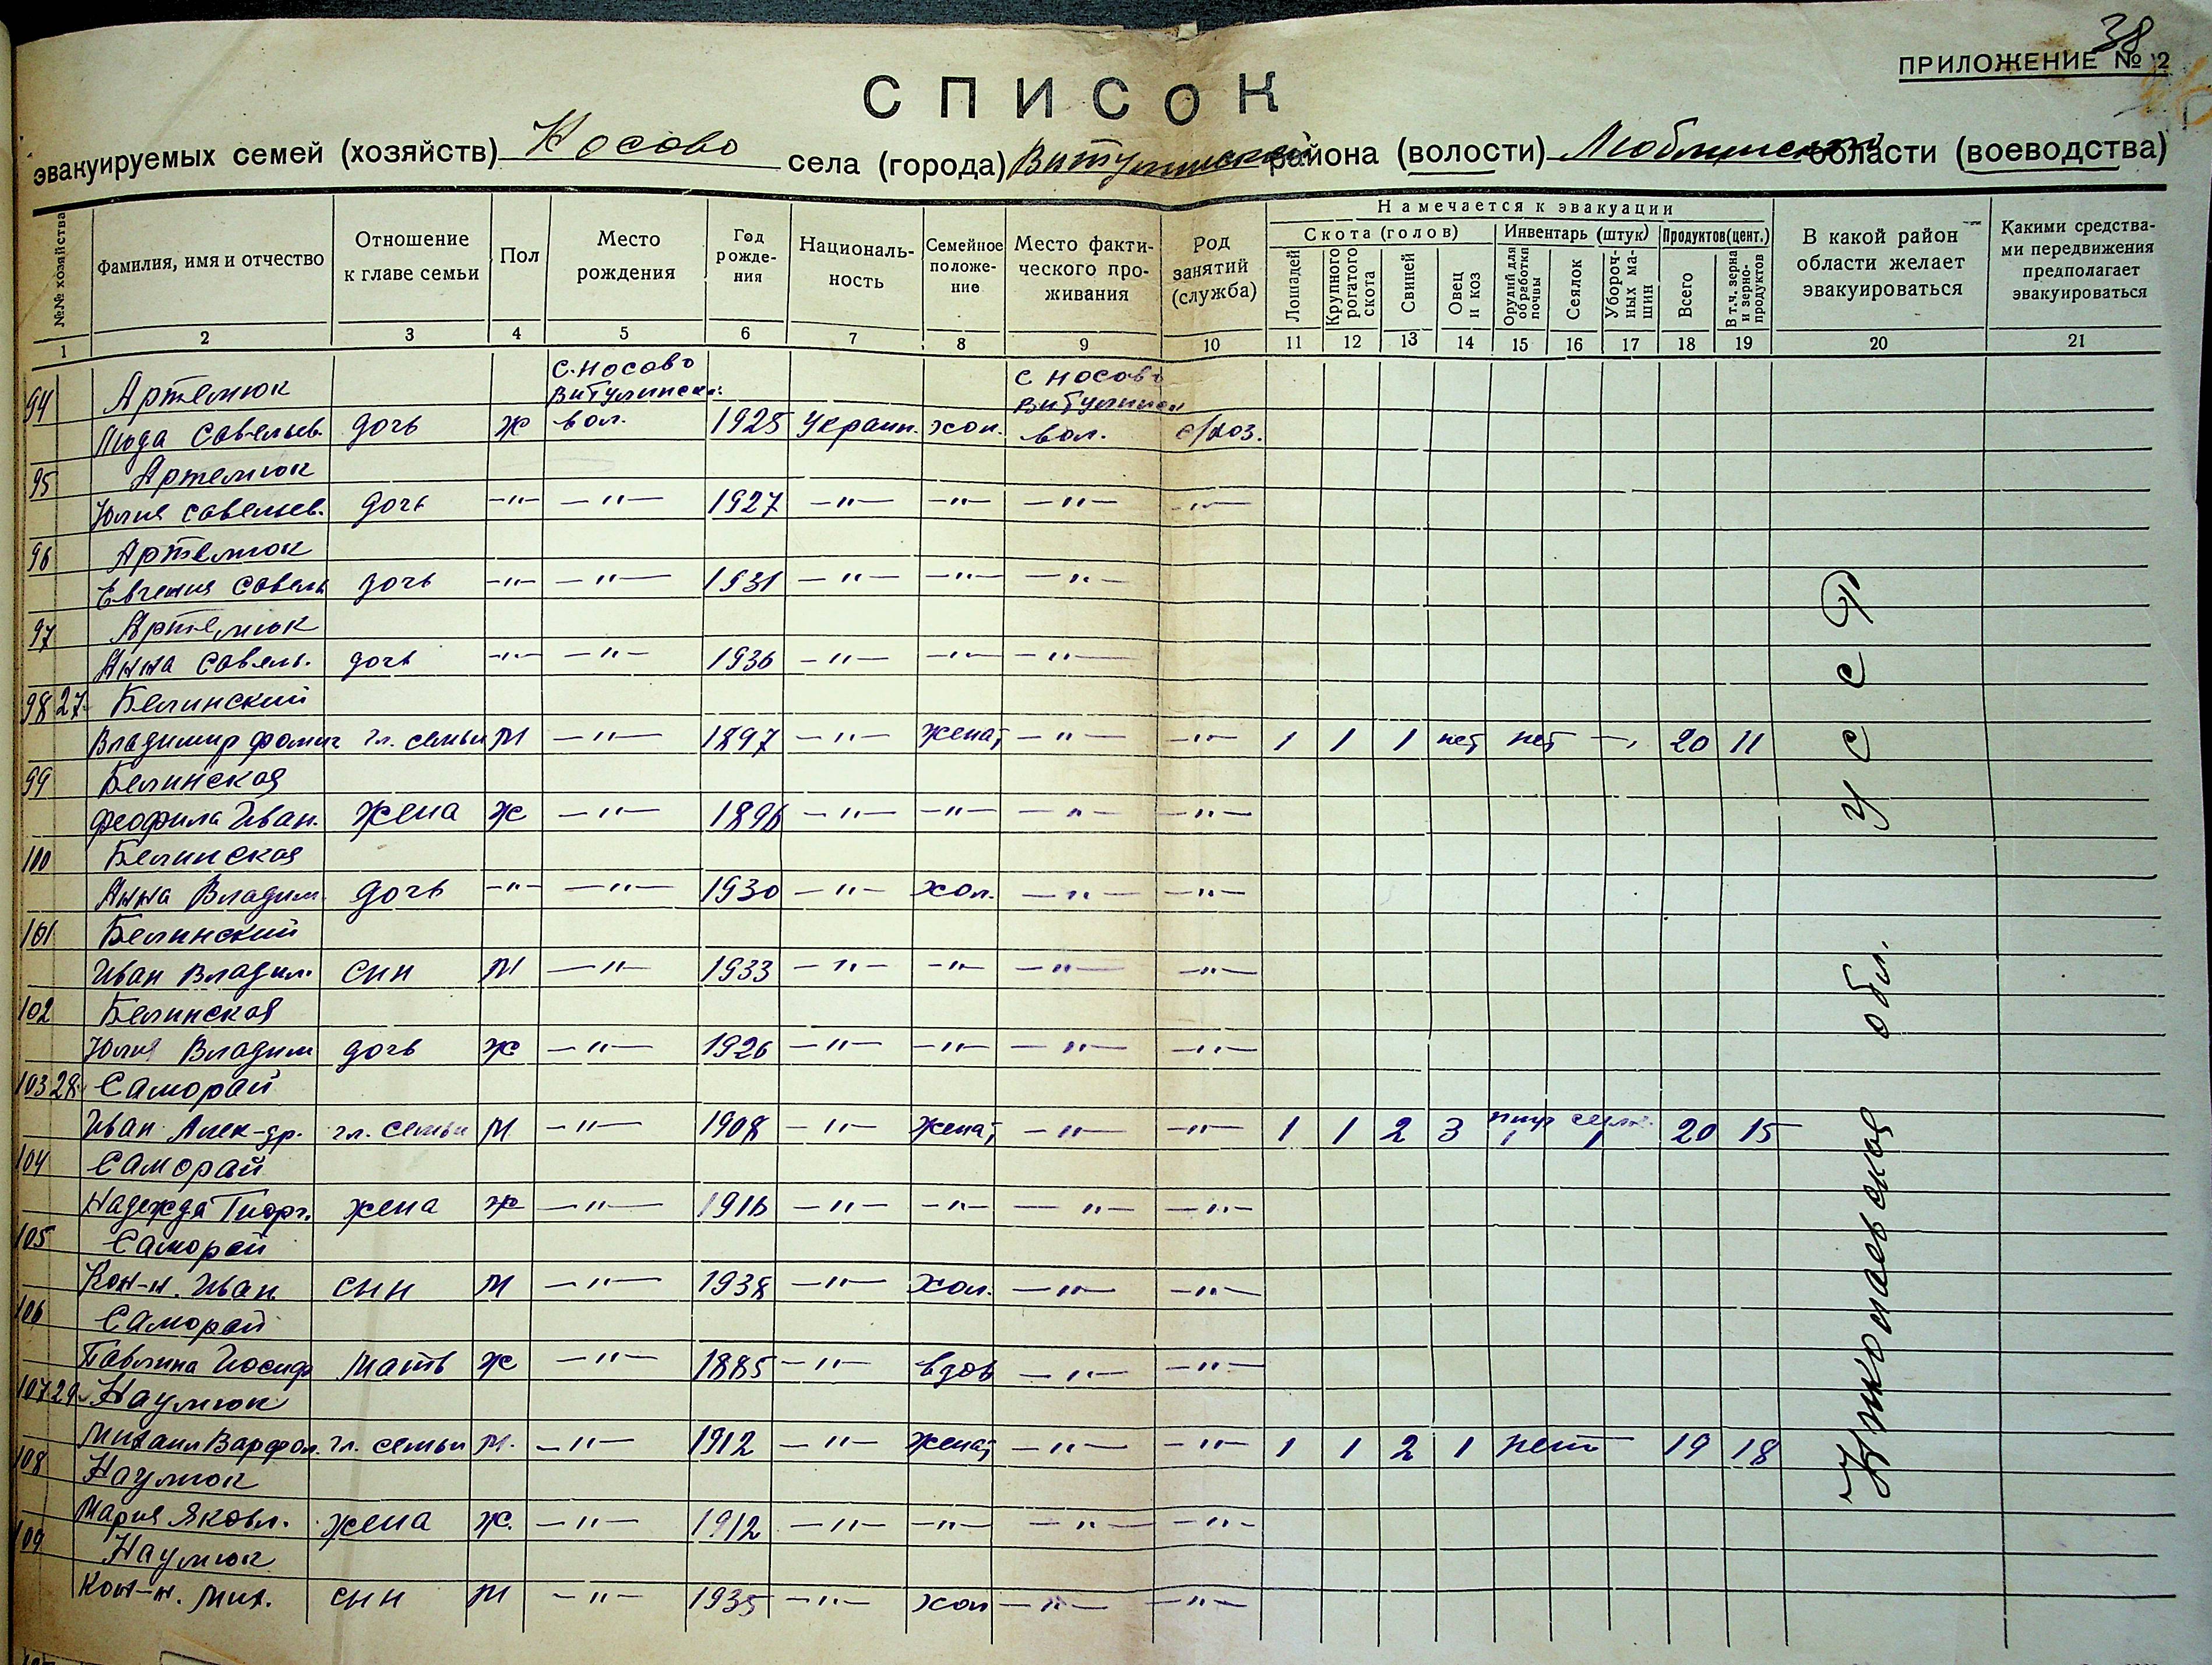 38
ПРИЛОЖЕНИЕ № 2
СПИСОК
эвакуируемых семей (хозяйств) Носово села (города) Витулинской района (волости) Люблинской области (воеводства)
№№ хозяйства
Фамилия, имя и отчество
Отношение к главе семьи
Пол
Место рождения
Год рождения
Националь-ность
Семейное положе-ние
Место факти-ческого про-живания
Род занятий (служба)
Намечается к эвакуации
Скота (голов)
Инвентарь (штук)
Продуктов (цент.)
Лошадей
Крупного рогатого скота
Свиней
Овец и коз
Орудий для обработки почвы
Сеялок
Убороч-ных ма-шин
Всего
В т. ч. зерна и зерно-продуктов
В какой район области желает эвакуироваться
Какими средства-ми передвижения предполагает эвакуироваться
1 2 3 4 5 6 7 8 9 10 11 12 13 14 15 16 17 18 19 20 21
94 Артемюк с. Носово Витулинск. с Носово Витулинск
Люда Савельев. дочь ж вол. 1925 Украин. хол. вол. с/хоз.
95 Артемюк
Юлия Савельев. дочь —"— —"— 1927 —"— —"— —"— —"—
96 Артемюк
Евгения Савель дочь —"— —"— 1931 —"— —"— —"—
97 Артемюк
Анна Савель. дочь —"— —"— 1936 —"— —"— —"—
98 27. Белинский
Владимир Фомич гл. семьи М —"— 1897 —"— женат —"— —"— 1 1 1 нет нет — 20 11
99 Белинская
Феофила Иван. жена ж —"— 1896 —"— —"— —"— —"—
100 Белинская
Анна Владим. дочь —"— —"— 1930 —"— хол. —"— —"—
101 Белинский
Иван Владим. сын М —"— 1933 —"— —"— —"— —"—
102 Белинская
Юлия Владим дочь ж —"— 1926 —"— —"— —"— —"—
103 28. Саморай
Иван Алек-др. гл. семьи М —"— 1908 —"— женат —"— —"— 1 1 2 3 1 1 20 15
104 Саморай
Надежда Георг. жена ж —"— 1916 —"— —"— —"— —"—
105 Саморай
Кон-н. Иван сын М —"— 1938 —"— хол. —"— —"—
106 Саморай
Павлина Иосиф мать ж —"— 1885 —"— вдов —"— —"—
107 29. Наумюк
Михаил Варфол. гл. семьи М. —"— 1912 —"— женат —"— —"— 1 1 2 1 нет — 19 18
108 Наумюк
Мария Яковл. жена ж. —"— 1912 —"— —"— —"— —"—
109 Наумюк
Кон-н. Мих. сын М —"— 1935 —"— хол —"— —"—
Николаевская обл. УССР